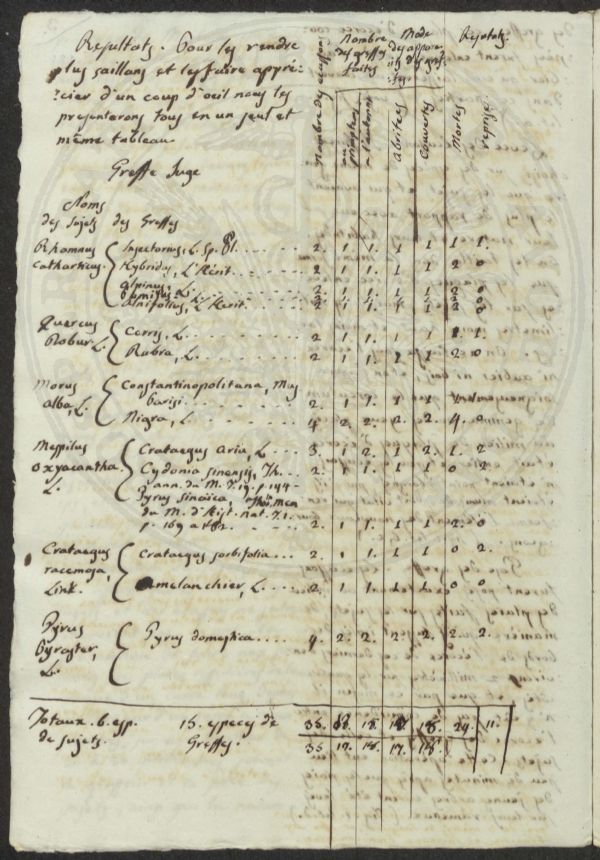 Resultats. Pour les rendre
plus saillans et les faire appré-
-cier d'un coup d'oeil nous les
presenterons tous en un seul et
même tableau.
Greffe Juge
Nombre des especes
Nombre des greffes faites
au printems
a l'automne
Mode
abritees
Couvertes
Resultats.
Mortes
reprises
Noms
des Sujets des Greffes
Rhamnus Infectorius, L. Sp. Pl. 2. 1. 1. 1 1 1. 1.
Catharticus. Hybridus, L'Hérit. 2 1 1. 1 1 2 0
alpinus, L. 2. 1 1. 1 1 2 0
pumilus L.
alnifolius, L'Herit. 2 1 1. 1 1 2 0
Quercus Cerris, L. 2 1 1. 1 1 1. 1.
Robur L. Rubra, L. 2 1 1. 1 1 2. 0
Morus Constantinopolitana,
alba, L. 2. 1 1. 1 1
Nigra, L. 4 2. 2. 2. 2 4. 0
Mespilus Crataegus aria, L. 3. 1 2. 1 2. 1. 2
oxyacantha. Cydonia sinensis, Th. 2. 1 1. 1 1 0 2.
L. ann. du M. T. 19. p 144-
Pyrus sinaica, Thou. Mem
du M. d'hist. nat. T. 1.
p. 169 2. 1 1. 1 1 2. 0
Crataegus Crataegus sorbifolia 2 1 1. 1 1 0 2.
racemosa,
Link. amelanchier, L. 2. 1 1. 1 1 0 0
Pyrus
Pyraster, Pyrus domestica 4. 2. 2. 2. 2. 2. 2
L.
Totaux. 6. esp. 15. especes de 35. 18. 18. 24. 11.
de sujets. Greffes. 35 17. 18. 17. 18